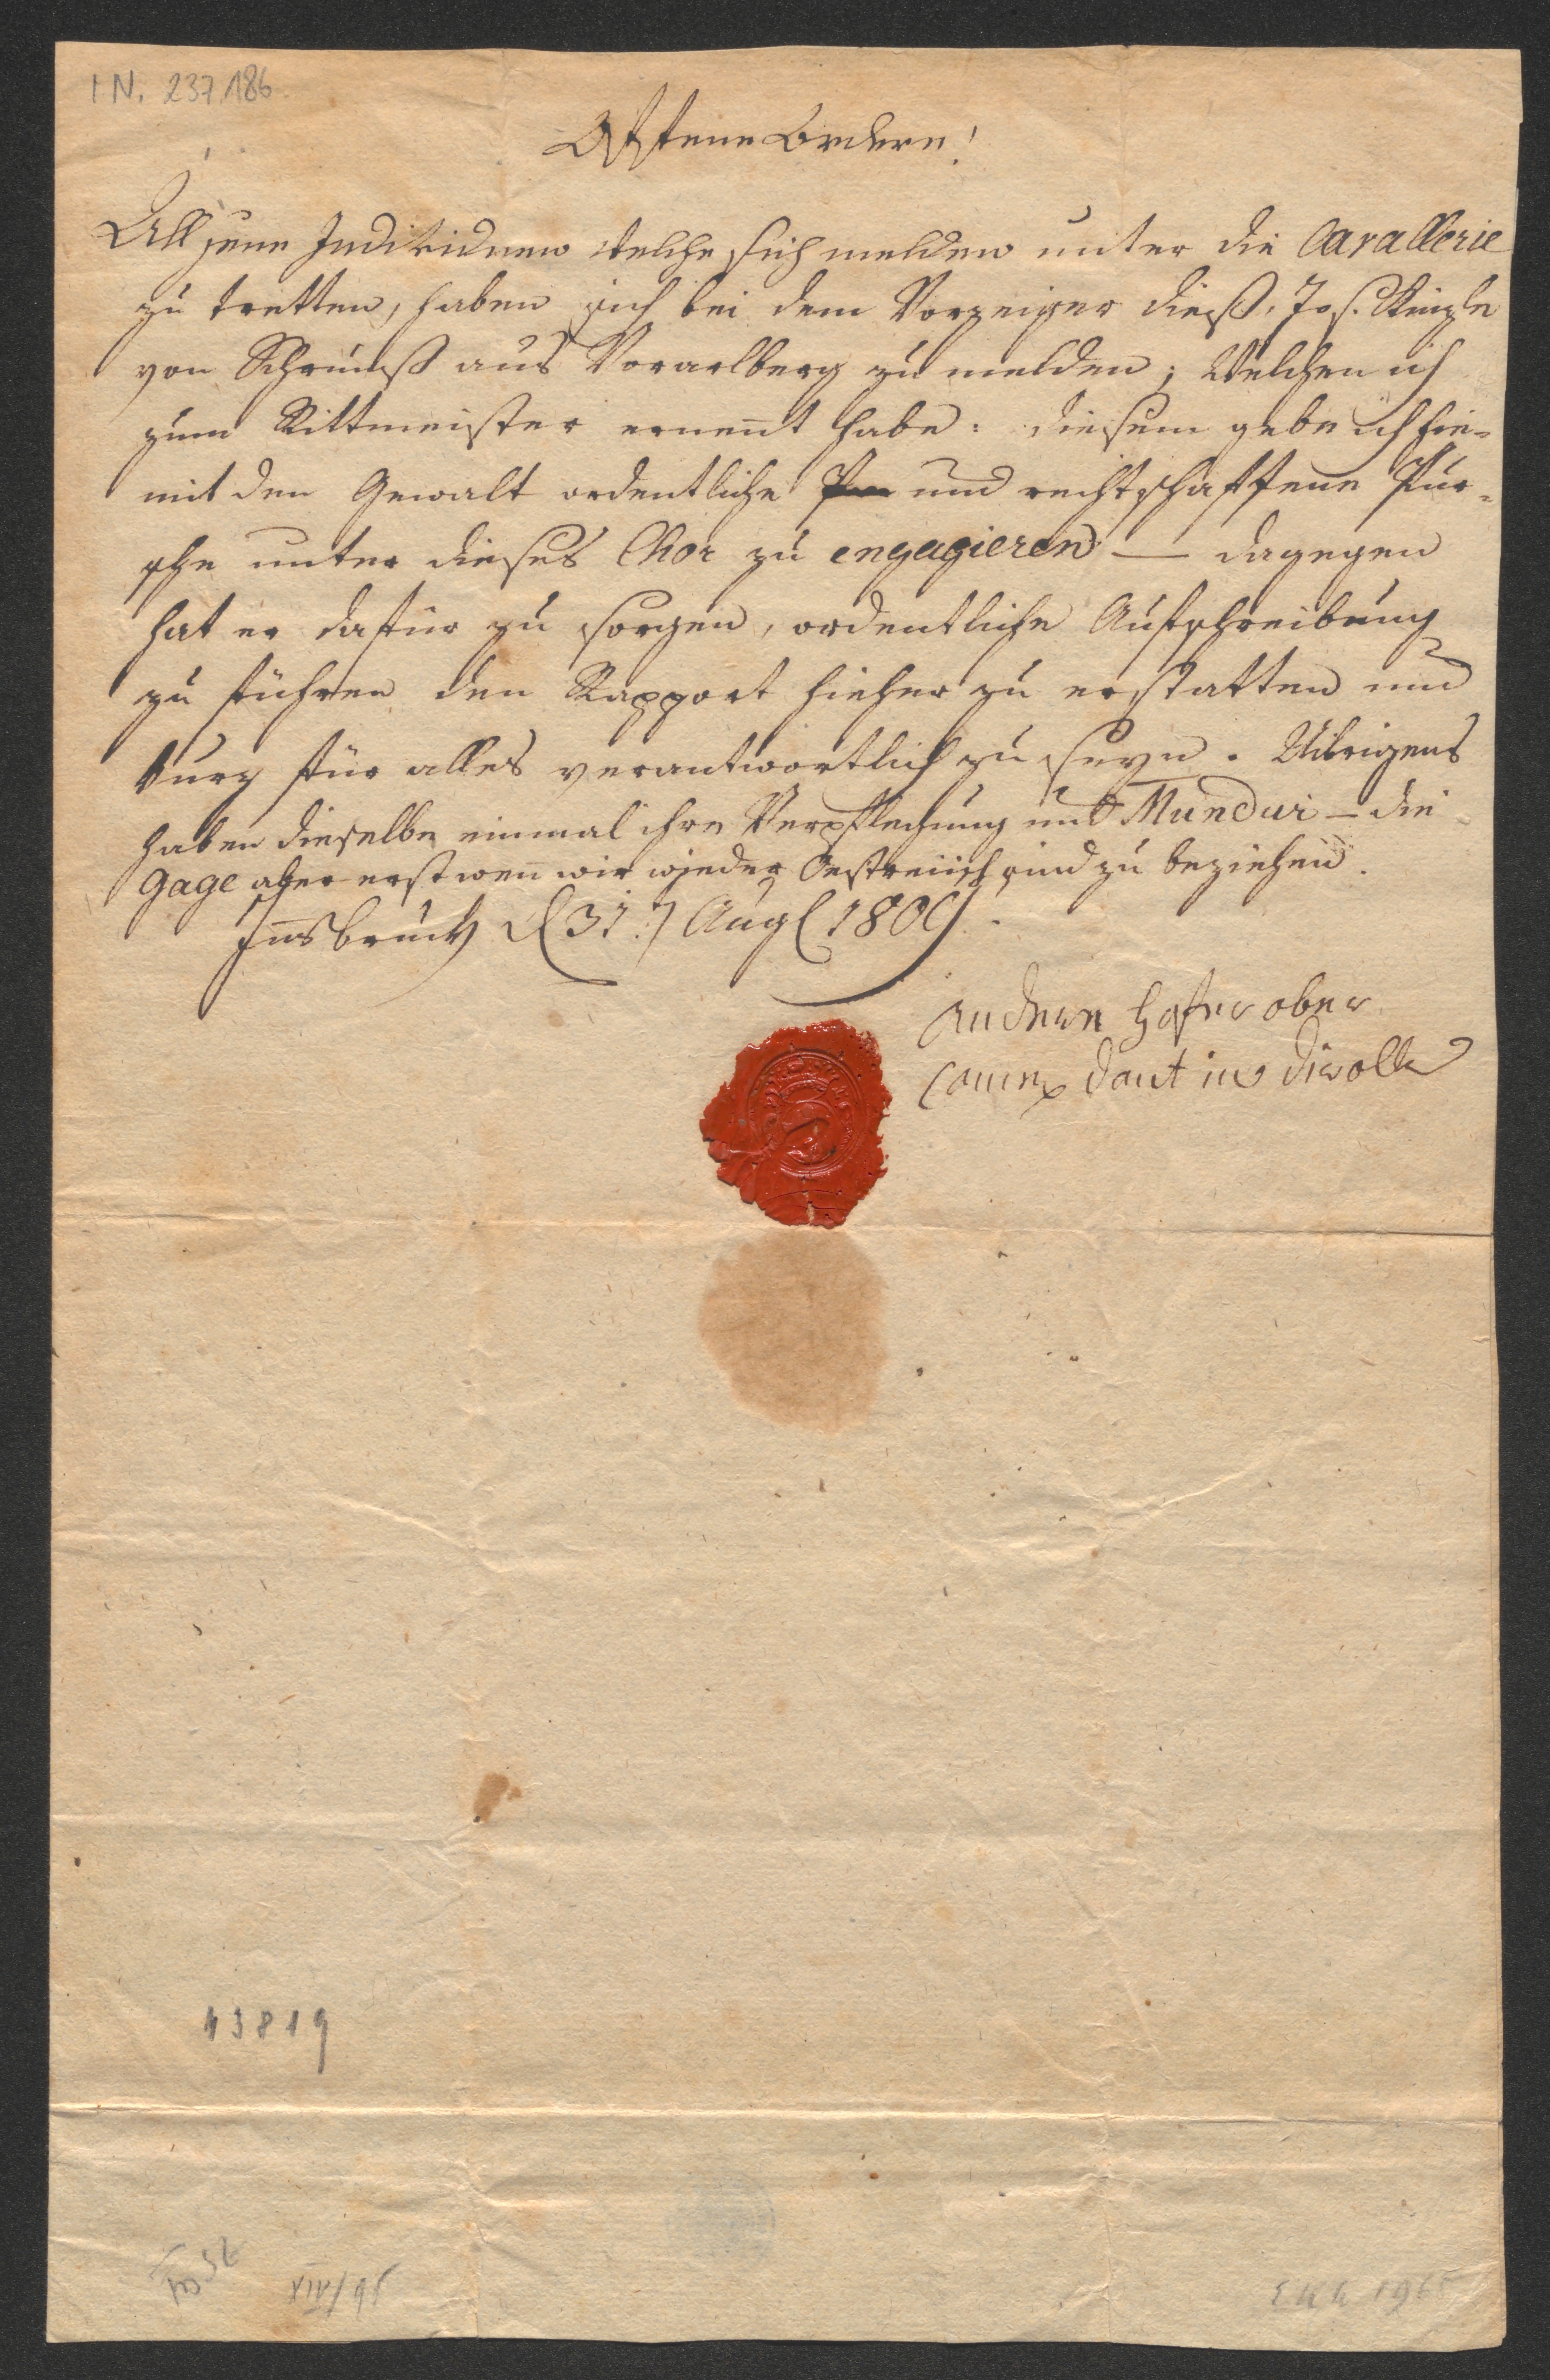 I N. 237.186.
Offene Ordere!
All jene Individuen welche sich melden unter die Cavallerie
zu tretten, haben sich bei dem Vorzeiger dieß, Jos.
von Schrunß aus Vorarlberg zu melden; Welchen ich
zum Rittmeister ernen̄t habe: diesem gebe ich hie-
mit den Gewalt ordentliche und rechtschaffene Pur-
sche unter dieses Chor zu engagieren — dagegen
hat er dafür zu sorgen, ordentliche Aufschreibung
zu führen den Rapport hieher zu erstatten und
kurz für alles verantwortlich zu seyn. Uibrigens
haben dieselbe einmal ihre Verpflechung und Mundur – die
Gage aber erst wen̄ wir wieder Oestreiich sind zu beziehen.
Jn̄sbruck d 31.t Aug 1809.
Andere Hofer ober
Comen dant in Diroll
43819
XIV/95
EKG 1965